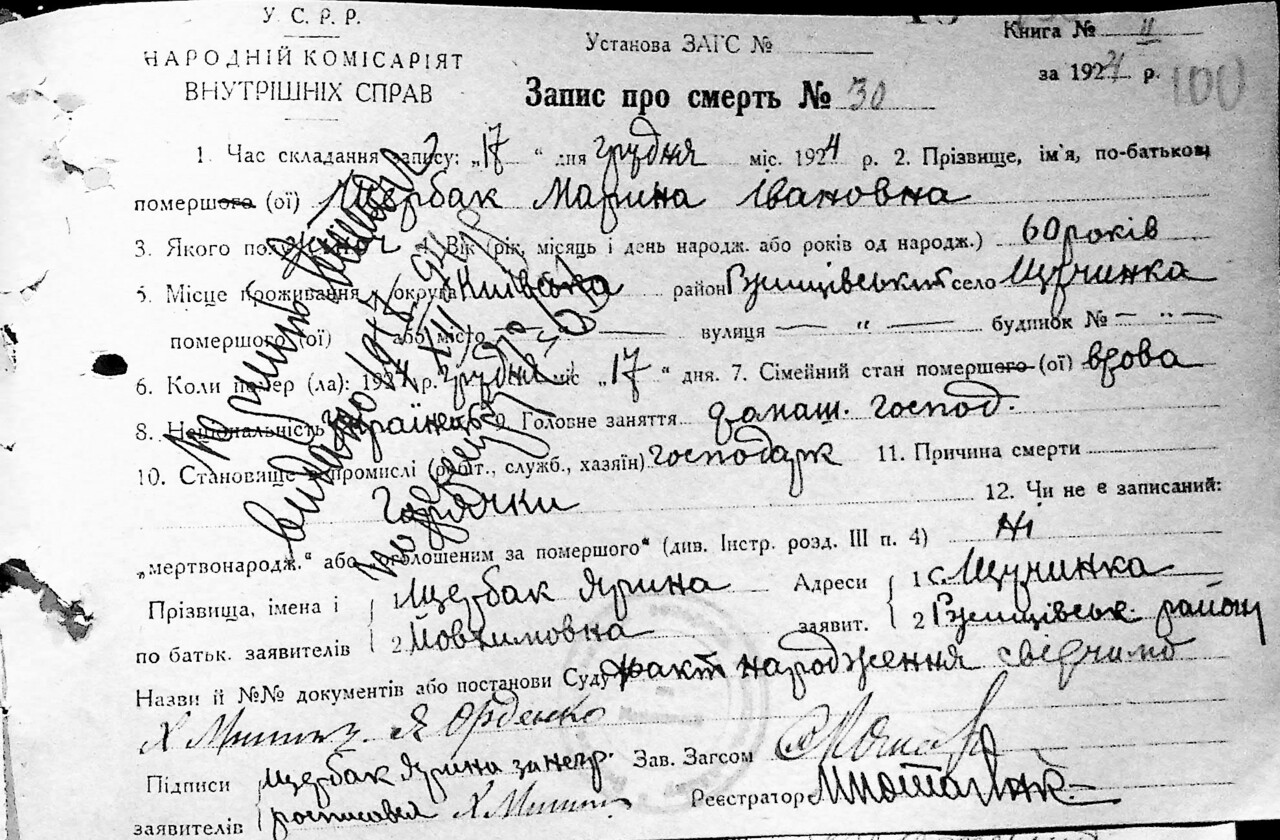 У. С. Р. Р.
НАРОДНІЙ КОМІСАРІЯТ
ВНУТРІШНІХ СПРАВ
Установа ЗАГС №
Книга № II
за 1924 р. 100
Запис про смерть № 30
1. Час складання запису: „17“ дня грудня міс. 1924 р. 2. Прізвище, ім'я, по-батькові
помершого (ої) Щербак Марина Івановна
3. Якого полу 4. Вік (рік, місяць і день народж. або років од народж.) 60 років
5. Місце проживання округа Київська район Ржищівський село Щучинка
помершого (ої) або місто — „ — вулиця — „ — будинок № — „ —
6. Коли помер (ла): 1924 р. грудня міс „17“ дня. 7. Сімейний стан помершого (ої) вдова
8. Національність Українець 9. Головне заняття домаш. господ.
10. Становище в промислі (робіт., служб., хазяїн) господарж 11. Причина смерти
Горячки 12. Чи не є записаний:
„мертвонародж.“ або „оголошеним за помершого“ (див. Інстр. розд. III п. 4) Ні
Прізвища, імена і 1 Щербак Ярина Адреси 1 с. Щучинка
по батьк. заявителів 2 Йовхимовна заявит. 2 Ржищівськ район
Назви й №№ документів або постанови Суду факт народження свідчимо
Підписи Щербак Ярина за негр. Зав. Загсом
заявителів росписався Реєстратор
видано